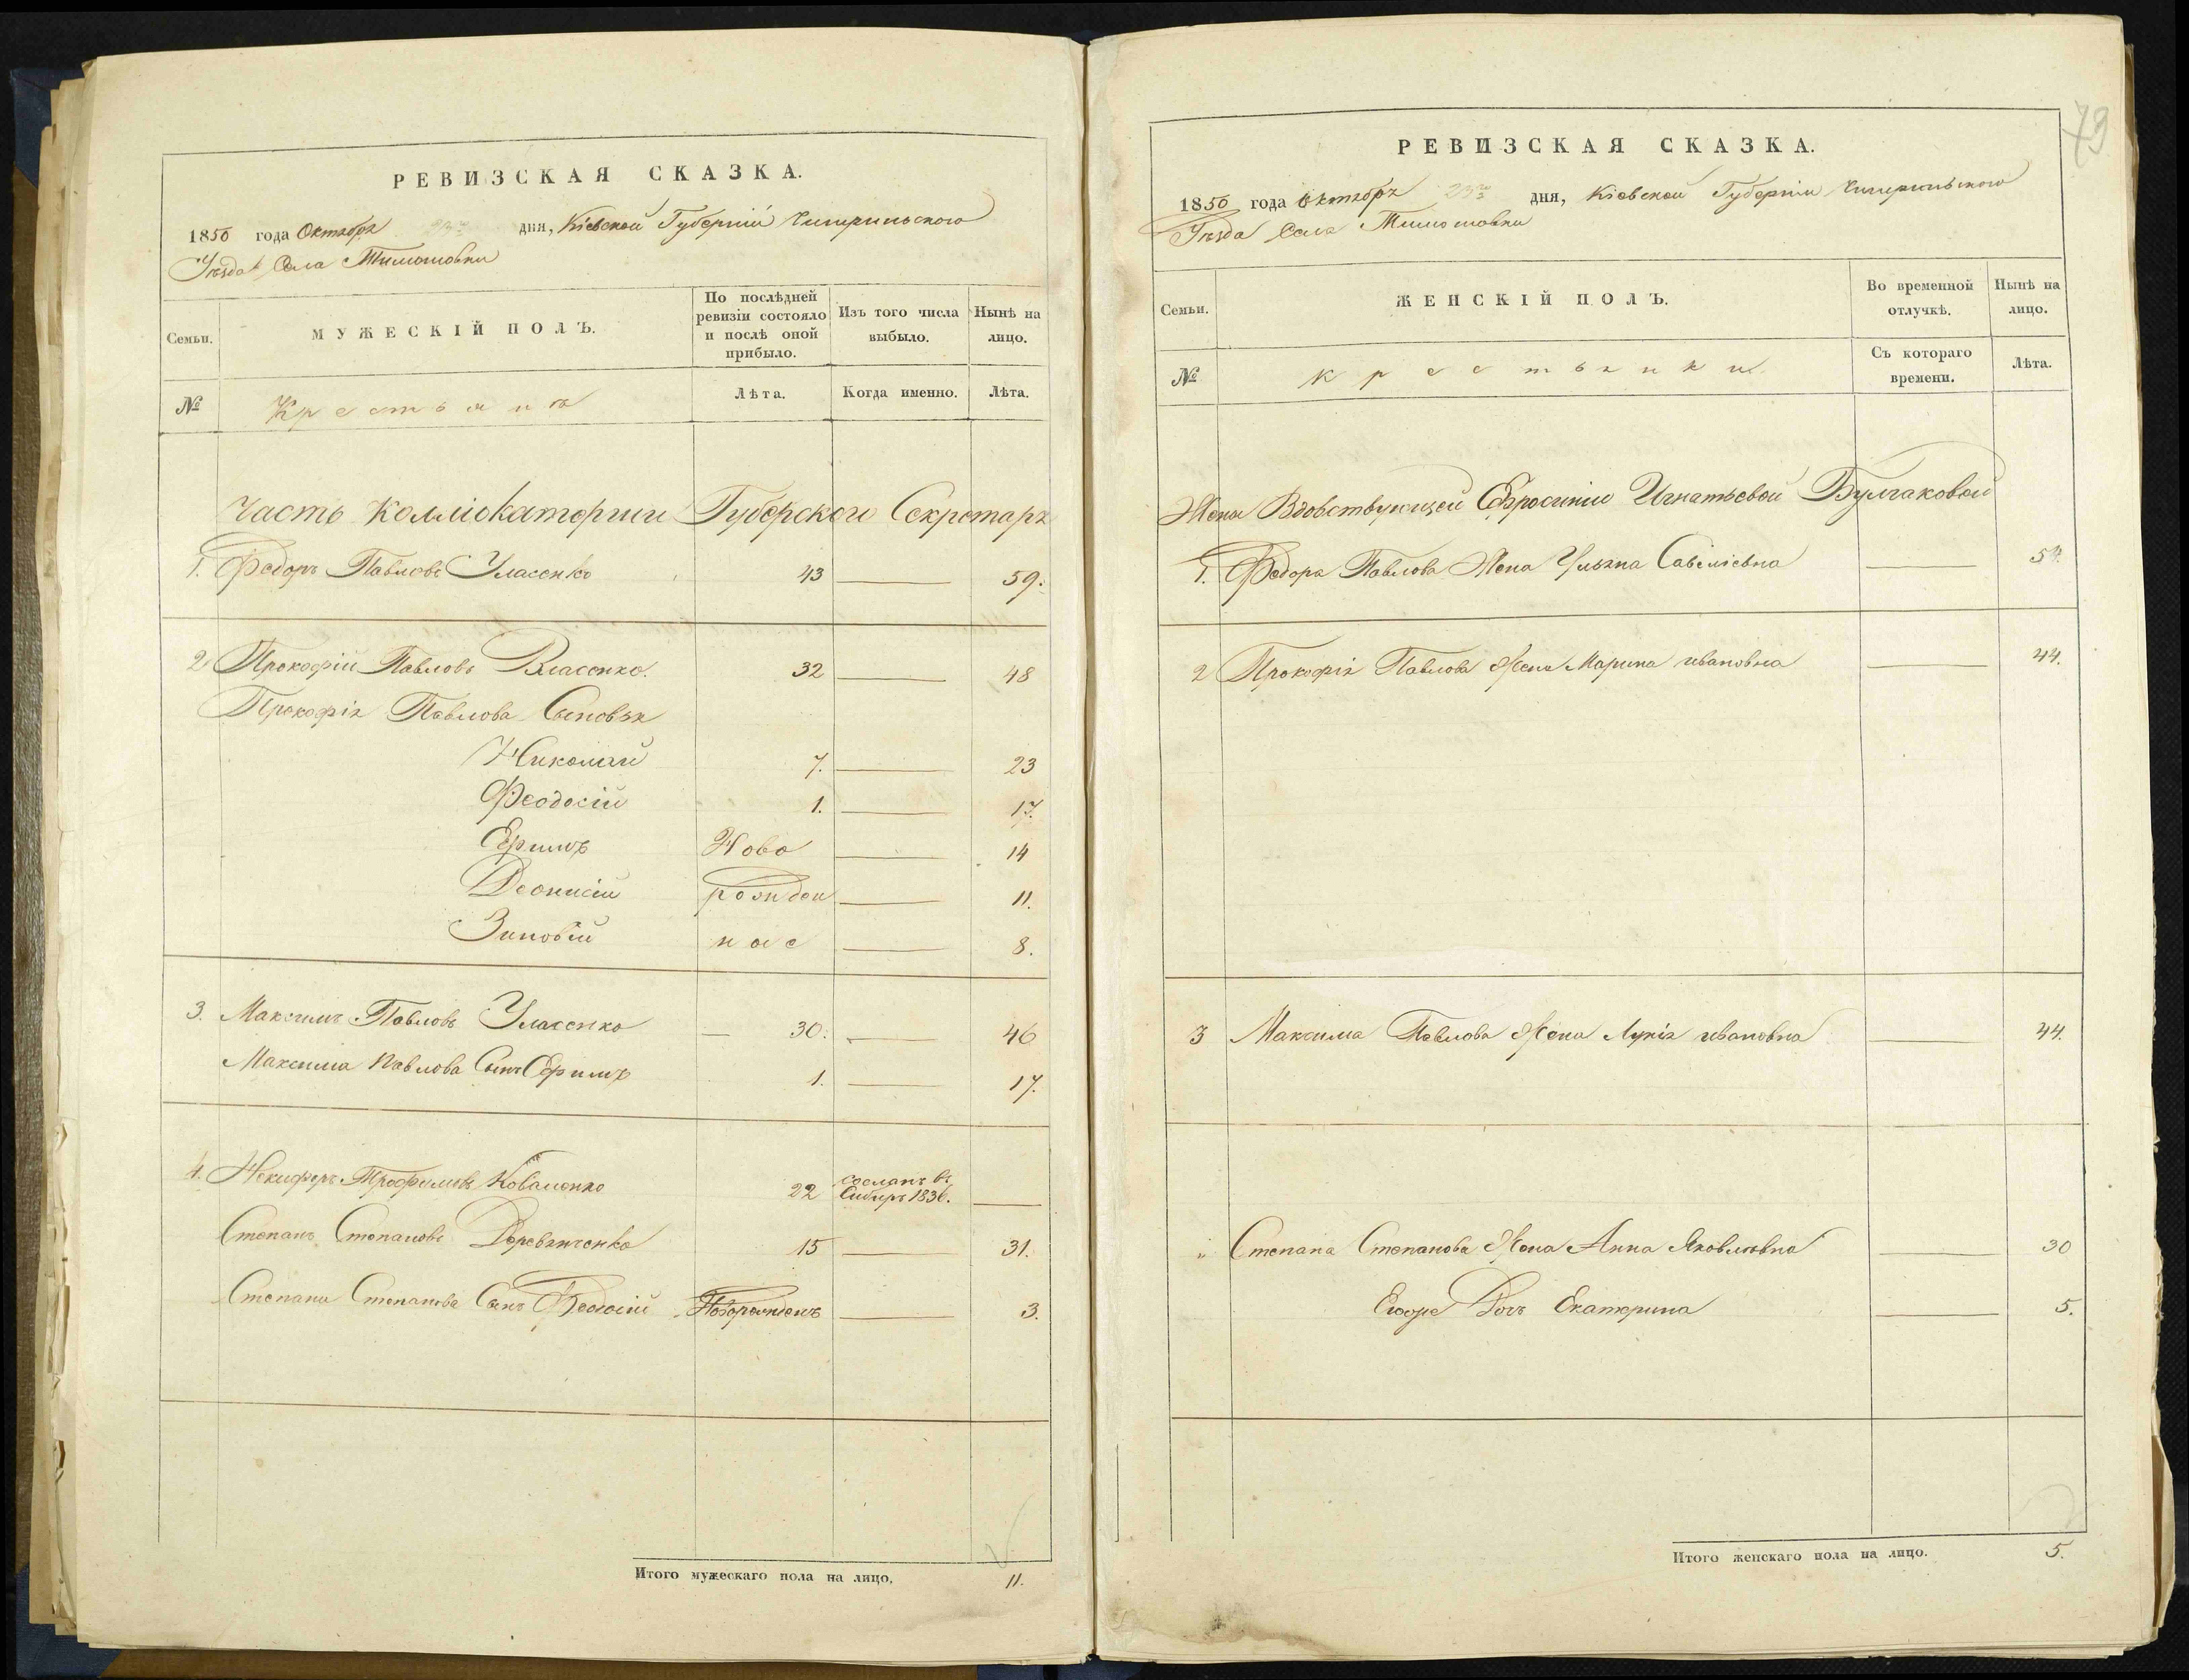 РЕВИЗСКАЯ СКАЗКА.
1850 года Октября 23го дня, Кіевской Губерніи Чигиринского
Уѣзда Села Тимошовки
Семьи.
МУЖЕСКІЙ ПОЛЪ.
По послѣдней ревизіи состояло и послѣ оной прибыло.
Изъ того числа выбыло.
Нынѣ на лицо.
№
Крестьянѣ
Лѣта.
Когда именно.
Лѣта.
Часть Губерского Секретаря
1. Федоръ Павловъ Уласенко 43 59.
2. Прокофій Павловъ Власенко. 32 48
Прокофія Павлова Сыновья
Николай 7. 23
Феодосій 1. 17.
Ефимъ Ново 14
Деонисій рожден 11.
Зиновій нас 8.
3. Максимъ Павловъ Уласенко 30. 46
Максима Павлова Сынъ Ефимъ 1. 17.
4. Некифоръ Трофимовъ Коваленко 22 сосланъ въ Сибирь 1836.
Степанъ Степановъ Деревянченко 15 31.
Степана Степанова Сынъ Феодосій Новорожденъ 3.
Итого мужескаго пола на лицо. 11.
79
РЕВИЗСКАЯ СКАЗКА.
1850 года Октября 23го дня, Кіевской Губерніи Чигиринского
Уѣзда Села Тимошовки
Семьи.
ЖЕНСКІЙ ПОЛЪ.
Во временной отлучкѣ.
Нынѣ на лицо.
№
Крестьянки
Съ котораго времени.
Лѣта.
Жены Вдовствующей Ефросиніи Игнатьевой Булгаковой
1. Федора Павлова Жена Ульяна Савеліевна
2 Прокофія Павлова Жена Марина ивановна 44.
3 Максима Павлова Жена Лукія ивановна 44.
" Степана Степанова Жена Анна Яковлевна 30
Егоже Дочь Екатерина 5.
Итого женскаго пола на лицо. 5.